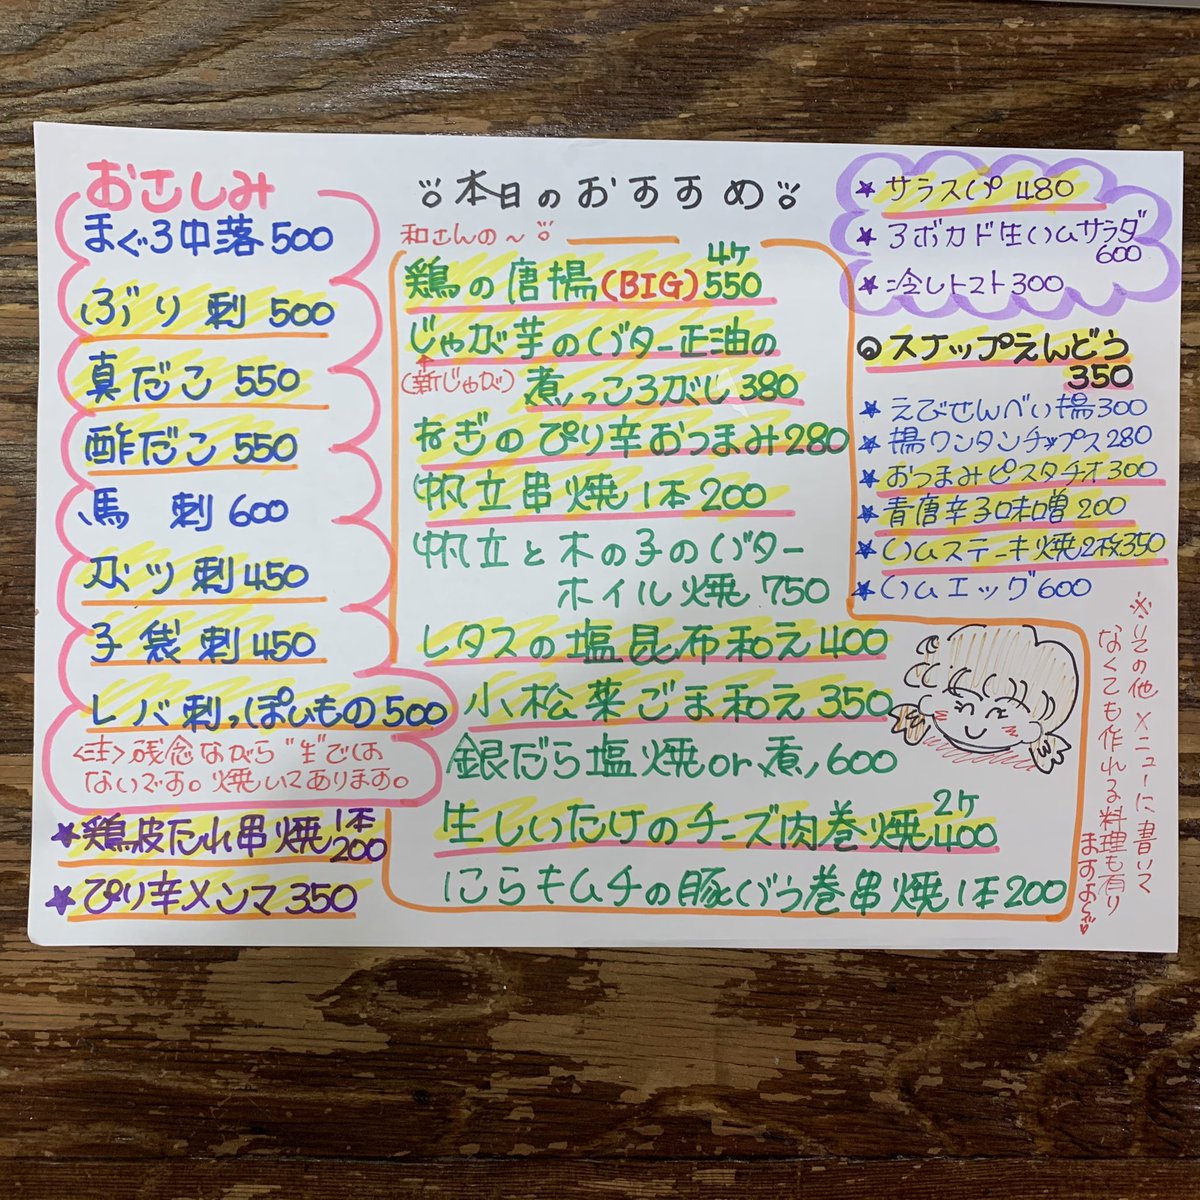 おさしみ
まぐろ中落 500
ぶり刺 500
真だこ 550
酢だこ 550
馬刺 600
ガツ刺 450
子袋刺 450
レバ刺っぽいもの 500
<注>残念ながら"生"では
ないです。焼いてあります。
★鶏皮たれ串焼 1本 200
★ぴり辛メンマ 350
本日のおすすめ
和さんの~
鶏の唐揚(BIG) 4ヶ 550
じゃが芋のバター正油の
(新じゃが)
煮っころがし 380
ねぎのぴり辛おつまみ 280
帆立串焼 1本 200
帆立と木の子のバター
ホイル焼 750
レタスの塩昆布和え 400
小松菜ごま和え 350
銀だら塩焼or煮 600
生しいたけのチーズ肉巻焼 2ヶ 400
にらキムチの豚バラ巻串焼 1本 200
★サラスパ 480
★アボカド生ハムサラダ
600
★冷しトマト 300
スナップえんどう
350
★えびせんべい揚 300
★揚ワンタンチップス 280
★おつまみピスタチオ 300
★青唐辛子味噌 200
★ハムステーキ焼 2枚 350
★ハムエッグ 600
※その他メニューに書いて
なくても作れる料理も有り
ますよ~♥